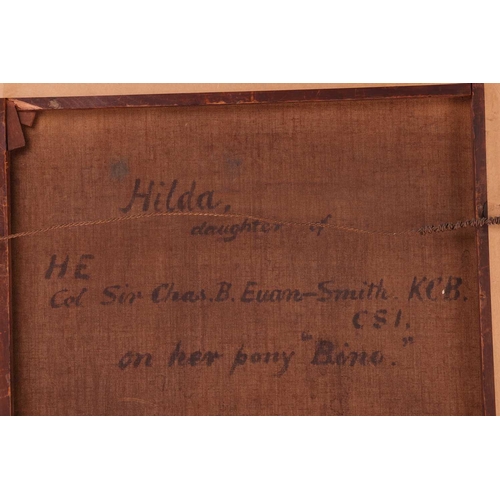 "Hilda,
daughter of
HE
Col Sir Chas. B. Euan-Smith. KCB.
CSI,
on her pony "Bino."